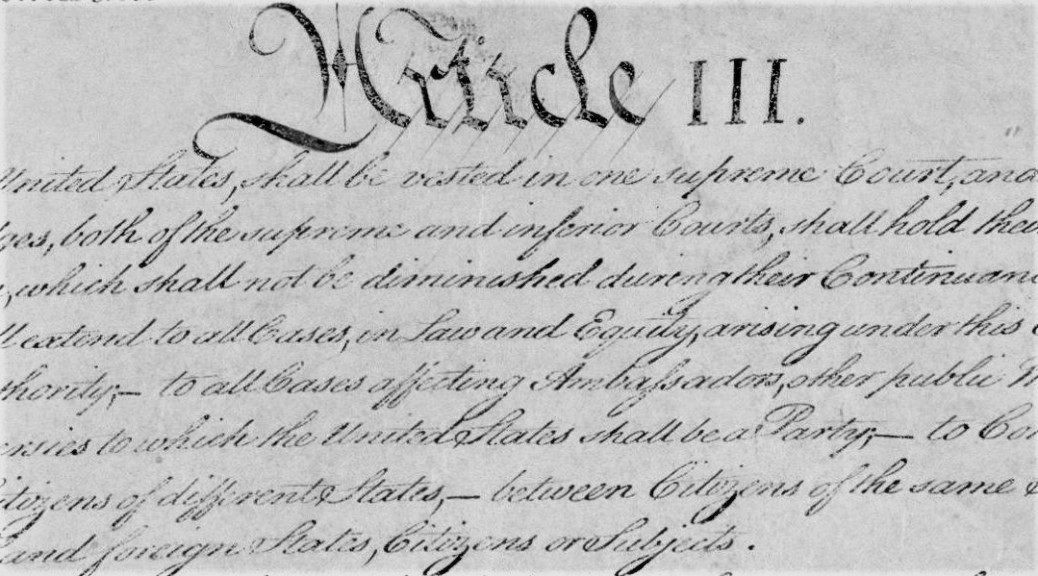 Article III.
United States, shall be vested in one supreme Court, and
ges, both of the supreme and inferior Courts, shall hold their
which shall not be diminished during their Continuanc
ll extend to all Cases, in Law and Equity, arising under this
thority;— to all Cases affecting Ambassadors, other public M
ersies to which the United States shall be a Party;— to Con
itizens of different States,— between Citizens of the same
and foreign States, Citizens or Subjects.